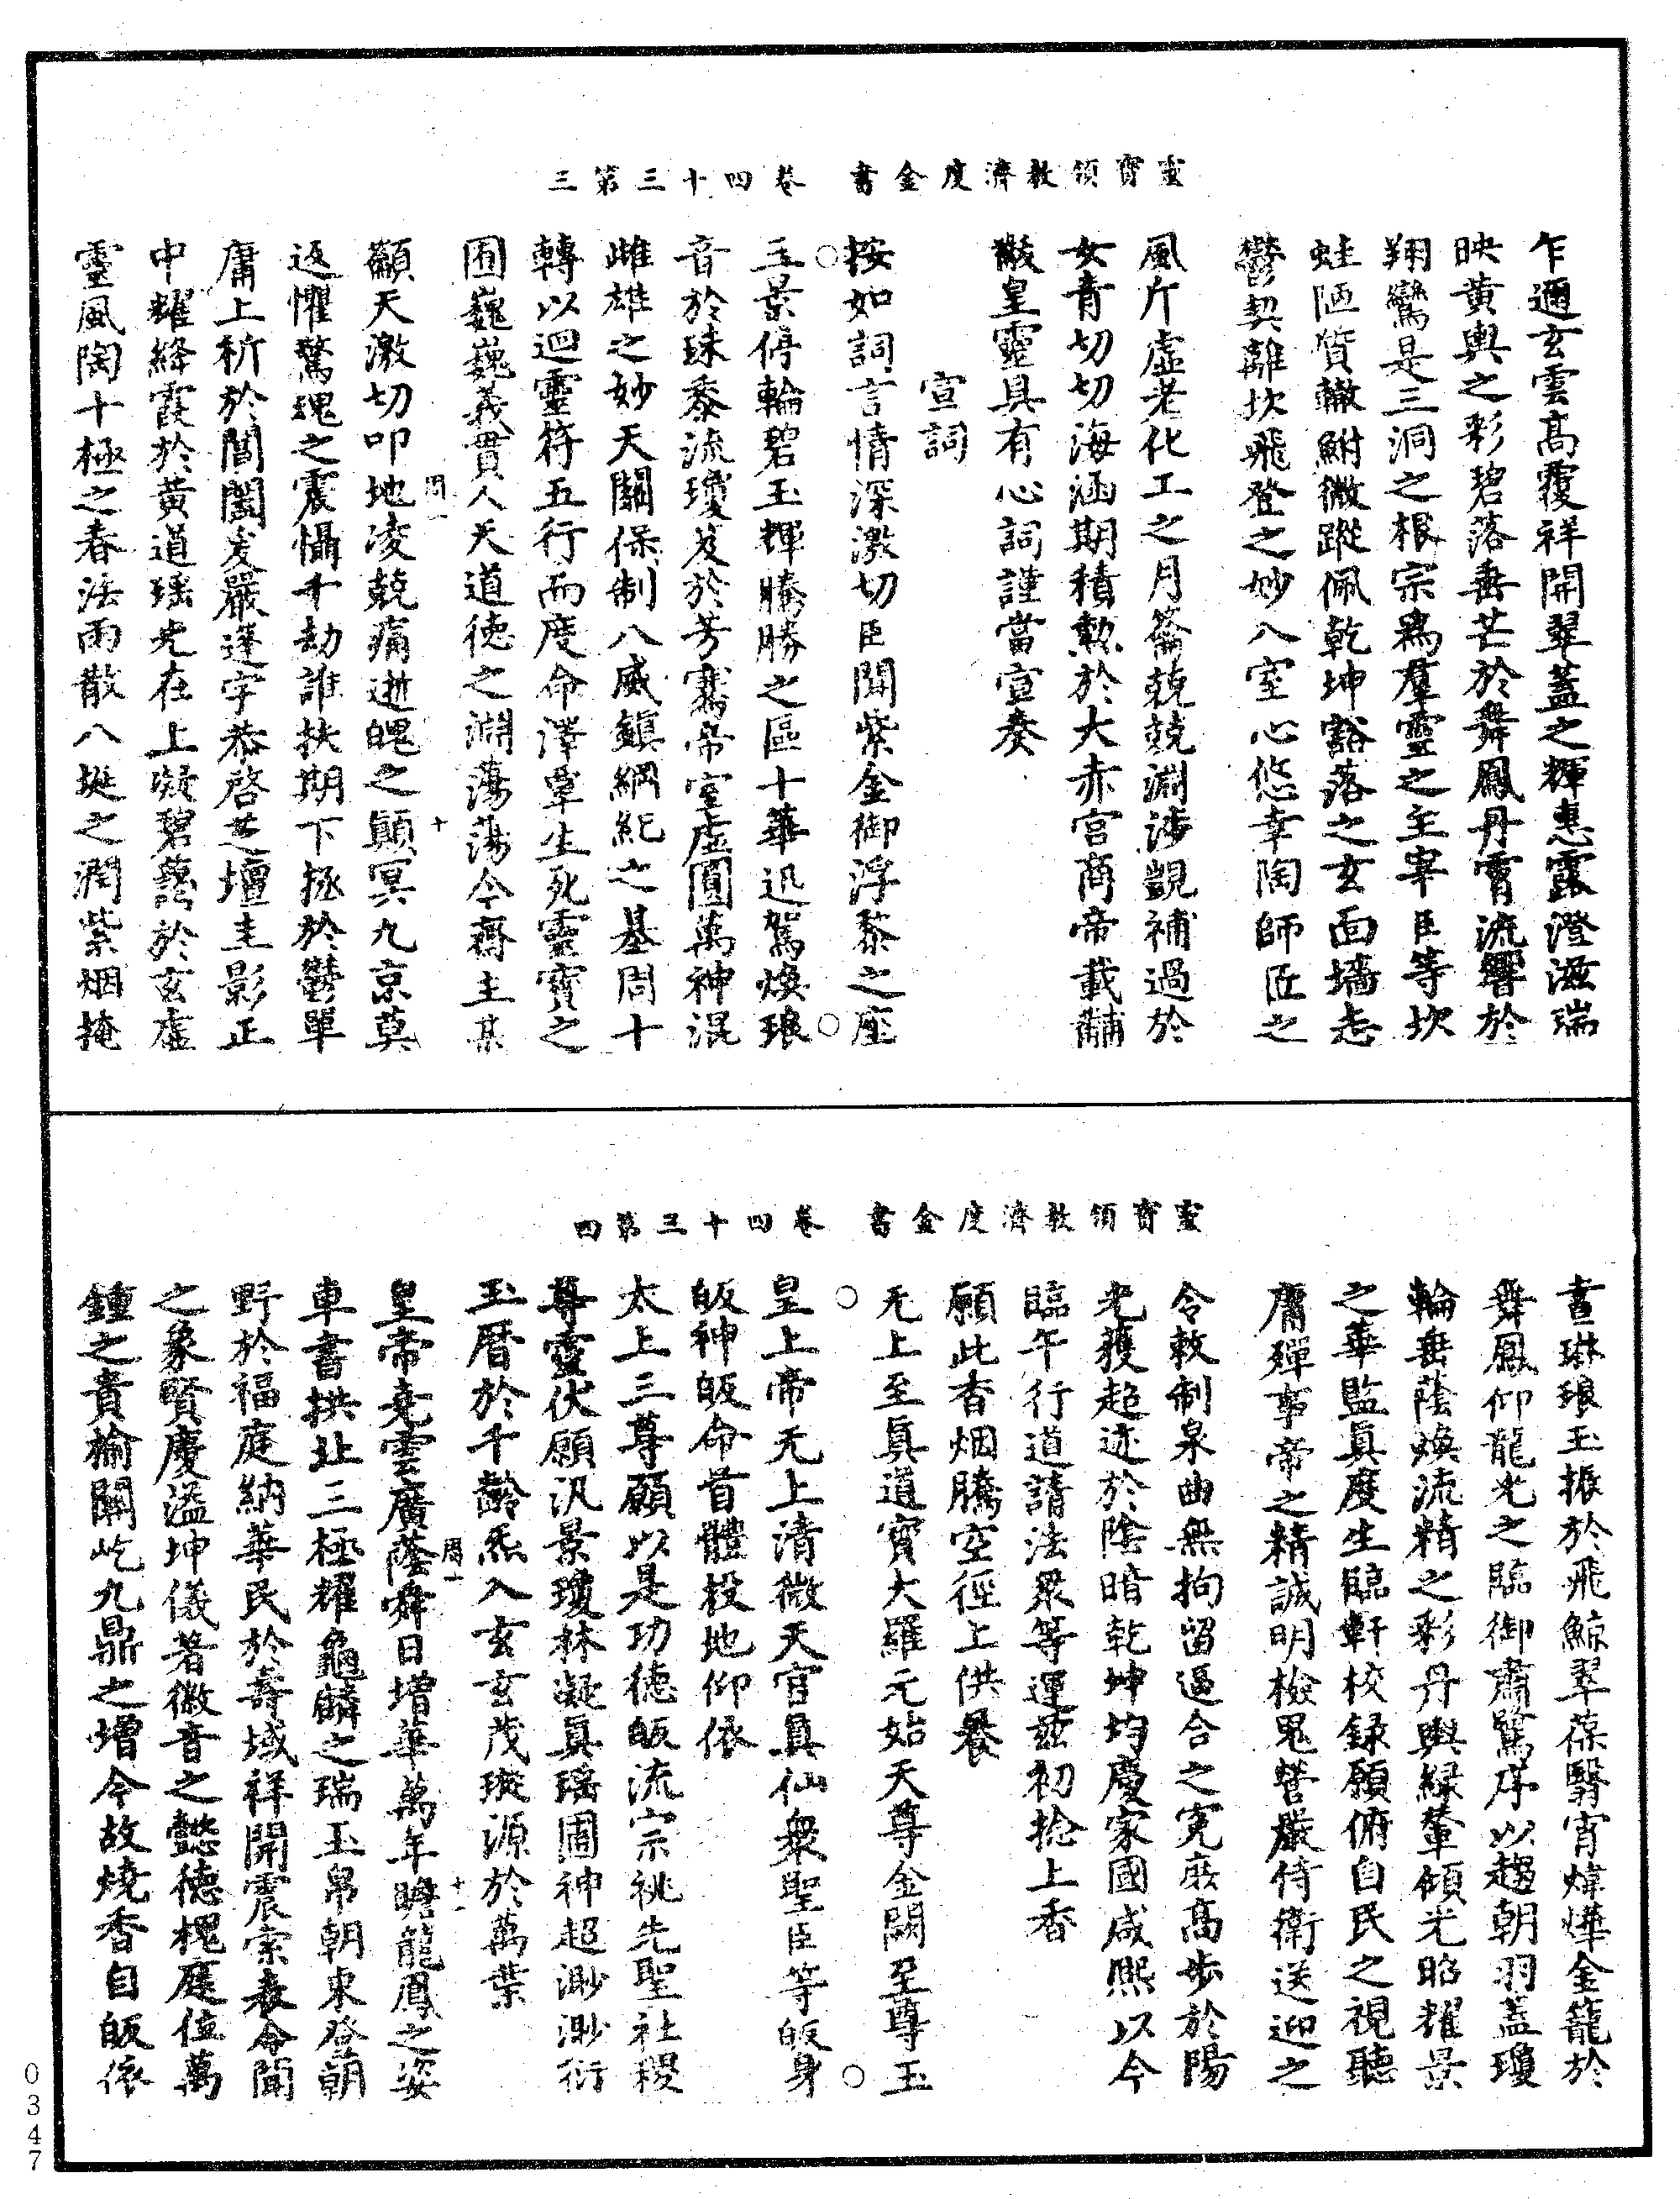 靈寶領教濟度金書　卷四十三第三
乍邇玄雲高覆祥開翠蓋之輝惠露澄滋瑞
映黃輿之彩碧落垂芒於舞鳳丹霄流響於
翔鸞是三洞之根宗為羣靈之主宰臣等坎
蛙陋質轍鮒微蹤佩乾坤豁落之玄面墻志
鬱契離坎飛登之妙八室心悠幸陶師匠之
風斤虛老化工之月籥兢兢淵涉覬補過於
女青切切海涵期積勲於大赤宮商帝載黼
黻皇靈具有心詞謹當宣奏
宣詞
按如詞言情深激切臣聞紫金御浮黎之座
○玉景停輪碧玉輝騰勝之區十華迅駕煥琅○
音於珠黍流瓊芨於芳騫帝室虛圓萬神混
雌雄之妙天關保制八威鎮綱紀之基周十
轉以迴靈符五行而度命澤覃生死靈寶之
囿巍巍義貫人天道德之淵蕩蕩今齋主某
籲天激切叩地凌兢痛逝魄之顛冥九京莫
周一
十
返懼驚魂之震懾千劫誰扶期下拯於鬱單
庸上祈於閶闔爰嚴蓬宇恭啓芝壇圭影正
中耀絳霞於黃道瑤光在上凝碧藹於玄虛
靈風陶十極之春法雨散八埏之潤紫烟掩
靈寶領教濟度金書　卷四十三第四
晝琳琅玉振於飛鯨翠葆翳宵煒燁金籠於
舞鳳仰龍光之臨御肅鷺序以趨朝羽蓋瓊
輪垂蔭煥流精之彩丹輿綠輦傾光昭耀景
之華監真度生臨軒校録願俯自民之視聽
庸殫事帝之精誠明檢鬼營嚴侍衛送迎之
令敕制泉曲無拘留逼合之冤庶高步於陽
光獲超迹於陰暗乾坤均慶家國咸熙以今
臨午行道請法眾等運茲初捻上香
願此香烟騰空徑上供養
无上至真道寶大羅元始天尊金闕至尊玉
○皇上帝无上清微天官真仙眾聖臣等皈身○
皈神皈命首體投地仰依
太上三尊願以是功德皈流宗祧先聖社稷
尊靈伏願汎景瓊林凝真瑤圃神超渺渺衍
玉曆於千齡炁入玄玄茂璇源於萬葉
皇帝堯雲廣蔭舜日增華萬年瞻龍鳳之姿
周一
十一
車書拱北三極耀龜麟之瑞玉帛朝東登朝
野於福庭納華民於壽域祥開震索表令聞
之象賢慶溢坤儀著徽音之懿德槐庭位萬
鍾之貴榆關屹九鼎之增今故燒香自皈依
0347